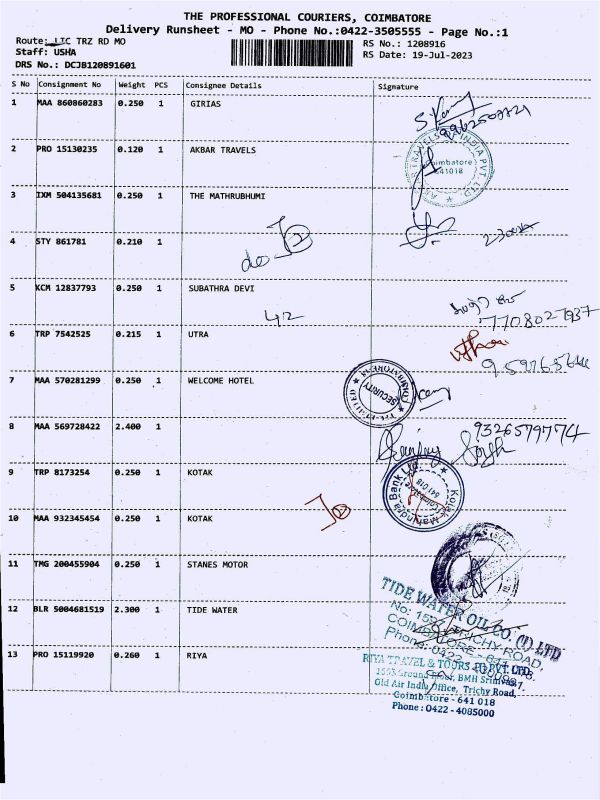 THE PROFESSIONAL COURIERS, COIMBATORE
Delivery Runsheet - MO - Phone No.:0422-3505555 - Page No.:1
Route: LIC TRZ RD MO RS No.: 1208916
Staff: USHA RS Date: 19-Jul-2023
DRS No.: DCJB120891601
S No Consignment No Weight PCS Consignee Details Signature
1 MAA 860860283 0.250 1 GIRIAS
2 PRO 15130235 0.120 1 AKBAR TRAVELS
Coimbatore
641018
3 IXM 504135681 0.250 1 THE MATHRUBHUMI
4 STY 861781 0.210 1
do
5 KCM 12837793 0.250 1 SUBATHRA DEVI
7708027937
42
6 TRP 7542525 0.215 1 UTRA
7 MAA 570281299 0.250 1 WELCOME HOTEL
SECURITY
8 MAA 569728422 2.400 1
9326579774
9 TRP 8173254 0.250 1 KOTAK
Kotak Mahindra Bank Ltd.
Coimbatore
641 018
10 MAA 932345454 0.250 1 KOTAK
11 TMG 200455904 0.250 1 STANES MOTOR
12 BLR 5004681519 2.300 1 TIDE WATER
TIDE WATER OIL CO. (I) LTD
TRICHY ROAD,
COIMBATORE
Phone: 0422
13 PRO 15119920 0.260 1 RIYA
RIYA TRAVEL & TOURS (I) PVT. LTD.
Ground Floor, BMH Srinivas,
Old Air India Office, Trichy Road,
Coimbatore - 641 018
Phone : 0422 - 4085000